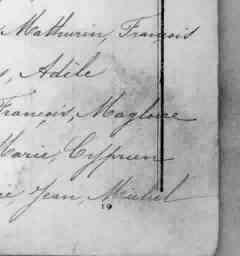 Mathurin, François
, Adèle
François, Magloire
Marie, Cyprien
Jean, Michel